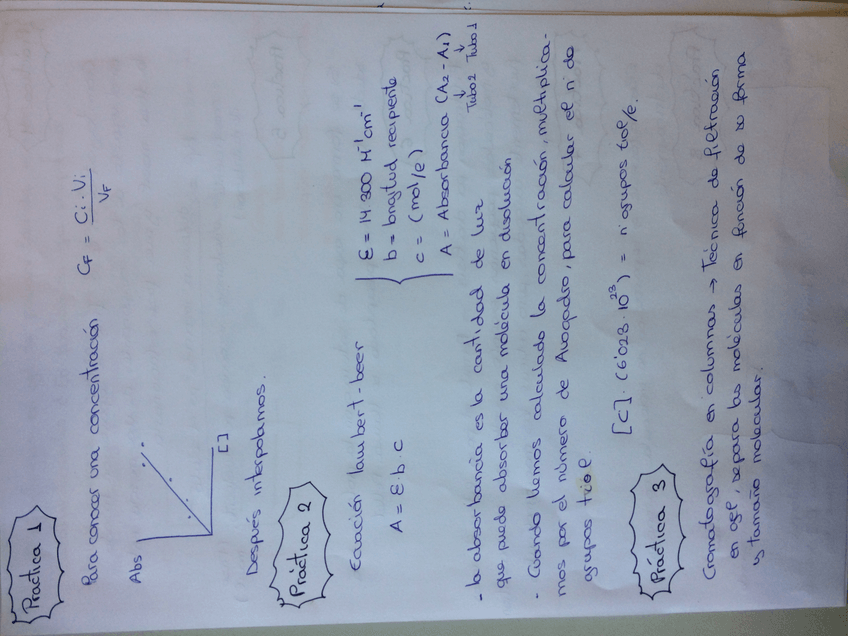 Práctica 1
Para conocer una concentración CF = Ci · Vi / VF
Abs
[ ]
Después interpolamos.
Práctica 2
Ecuación lambert-beer
A = ε · b · c
ε = 14 300 M⁻¹cm⁻¹
b = longitud recipiente
c = (mol/e)
A = Absorbancia (A2 - A1)
Tubo 2 Tubo 1
- la absorbancia es la cantidad de luz
que puede absorber una molécula en disolución
- Cuando hemos calculado la concentración, multiplica-
mos por el número de Avogadro, para calcular el nº de
grupos tiol.
[C] · (6'023 · 10²³) = nº grupos tiol/e.
Práctica 3
Cromatografía en columnas → Técnica de filtración
en gel, separa las moléculas en función de su forma
y tamaño molecular.